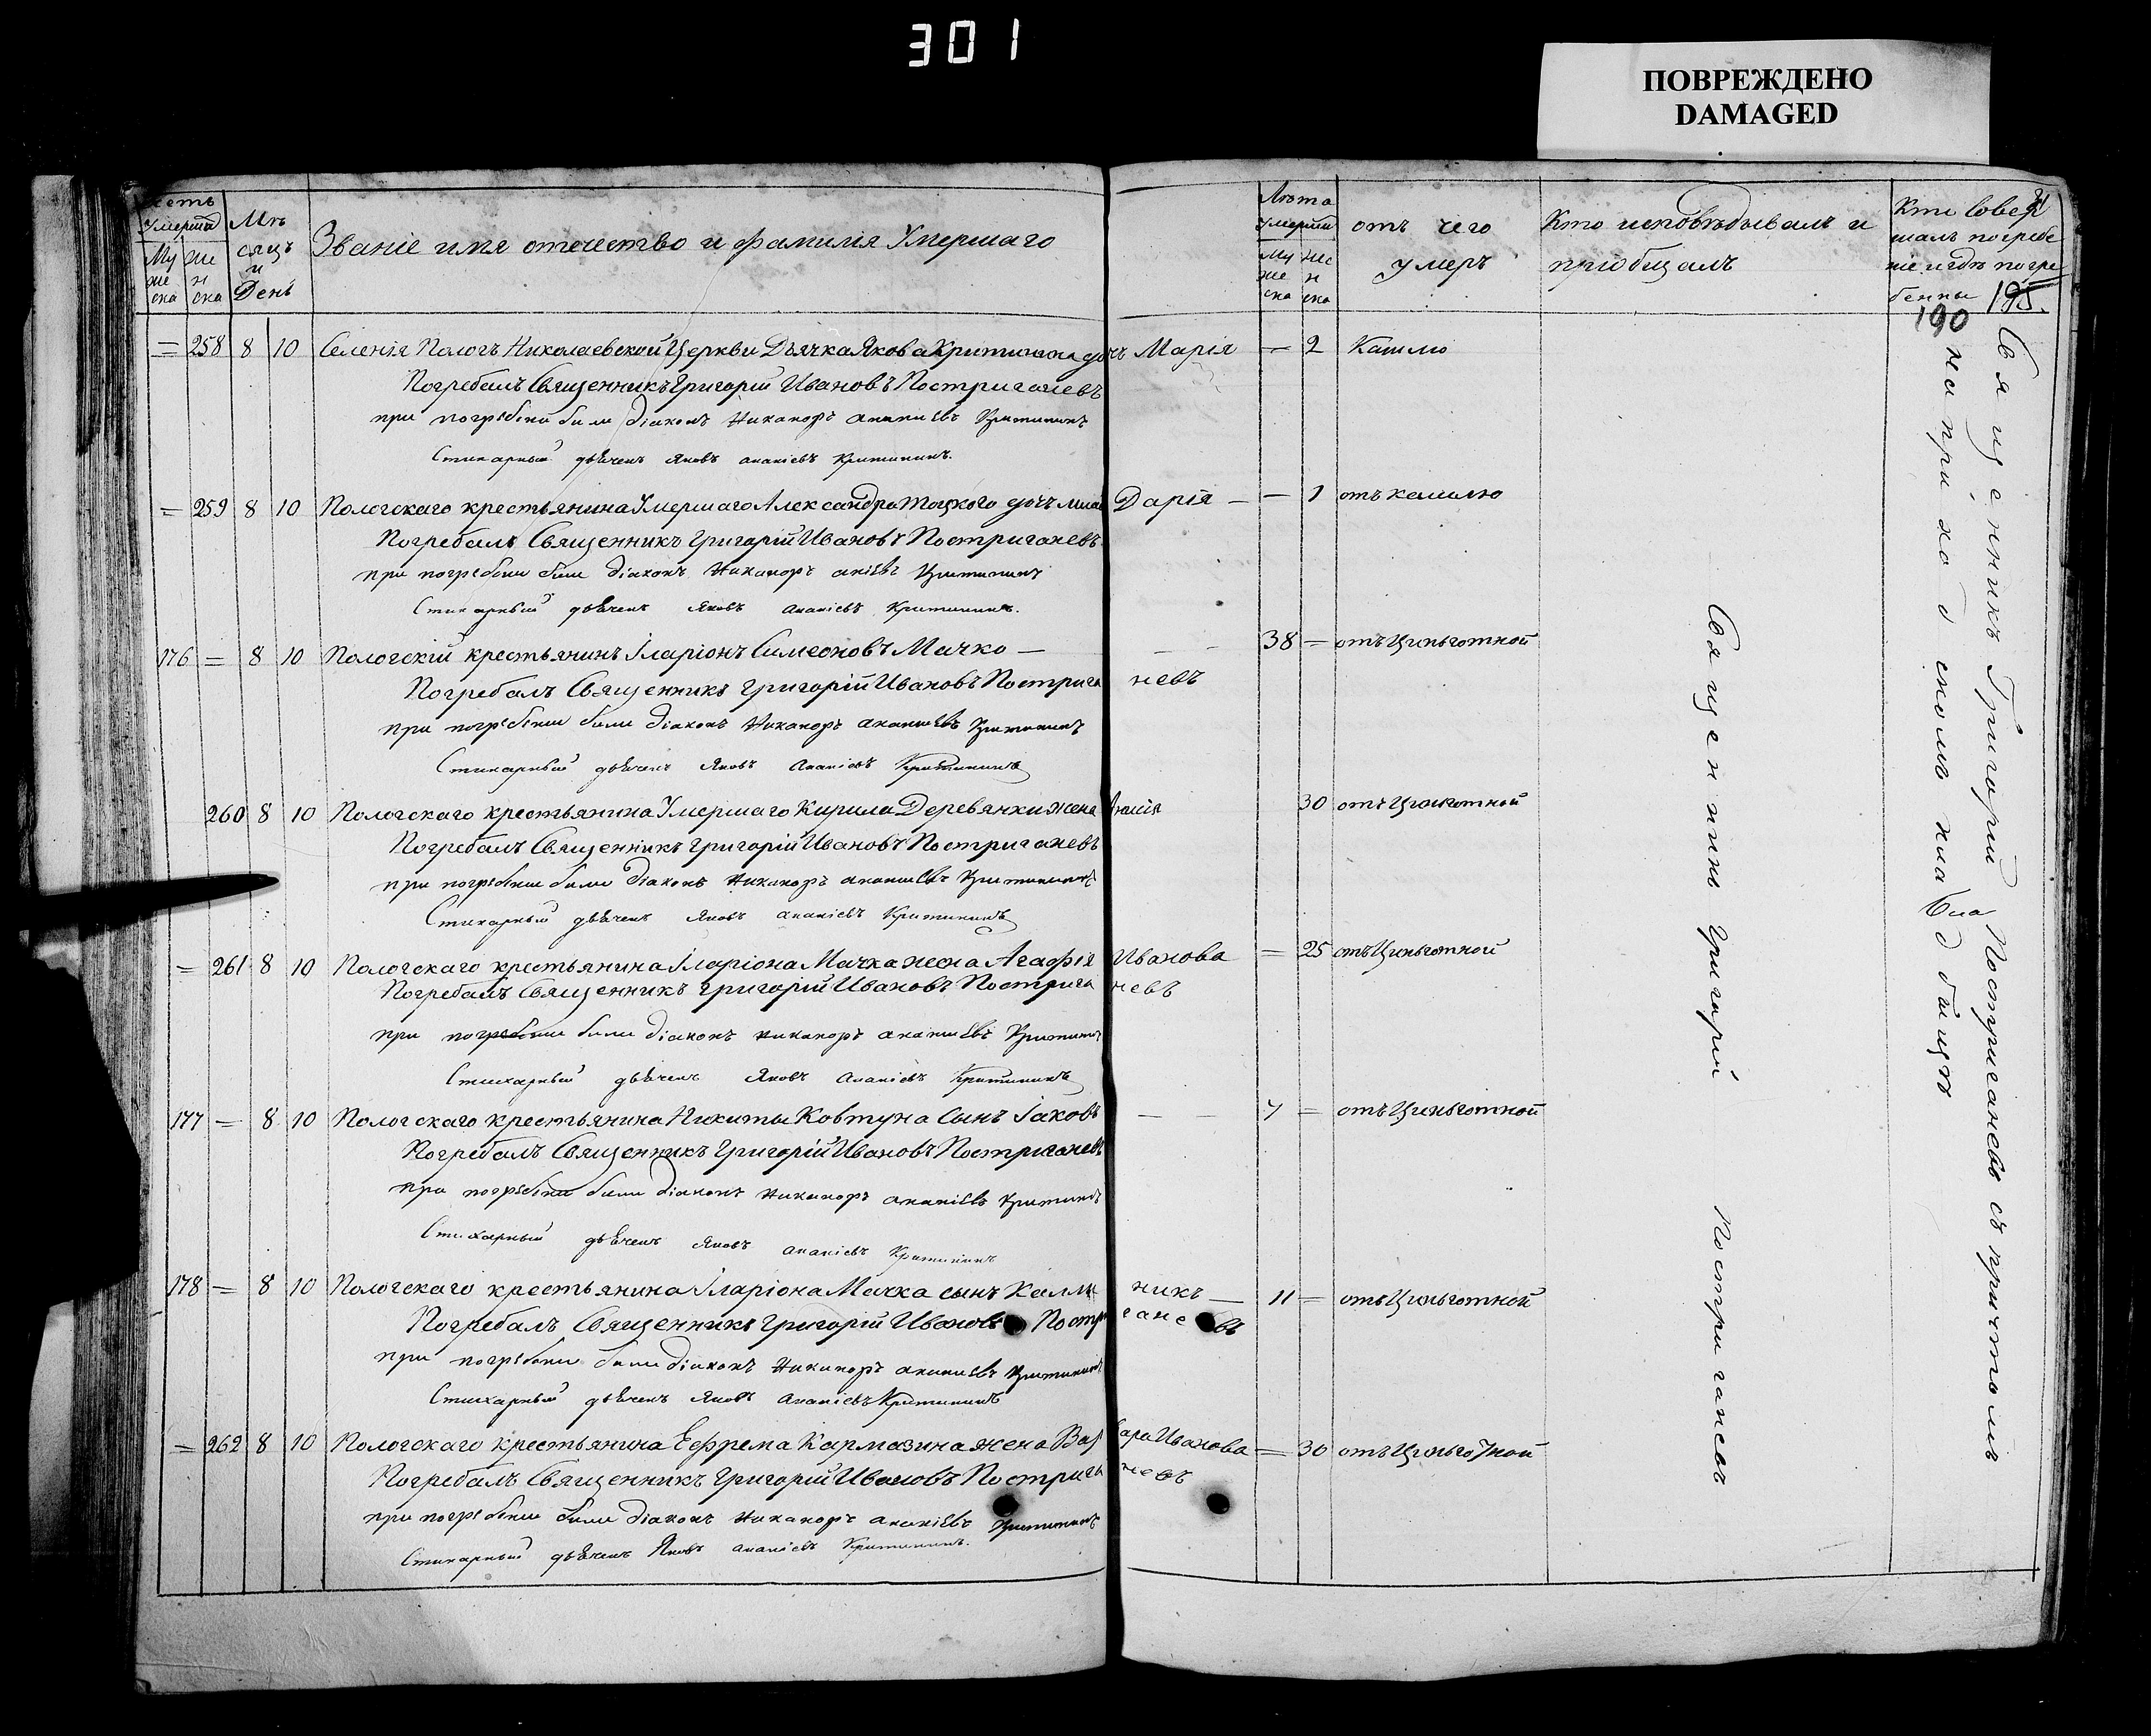 301
ПОВРЕЖДЕНО
DAMAGED
Умерши
Му же ска
Же н ска
Мѣ сяцъ и День
Званіе имя отечество и фамилія Умершаго
Лѣта Умерши
Му же ска
Же н ска
отъ чего умеръ
Кто исповѣдывалъ и пріобщалъ
Кто совер шалъ погребе ніе и гдѣ погре бенны
195.
190
= 258 8 10 Селенія Пологъ Николаевской Церкви Дьячка Якова Критинина дочь Марія — 2 Кашлю
Погребалъ Священникъ Григорій Ивановъ Постриганевъ
при погребеніи были діаконъ Никаноръ Ананіевъ Критининъ
Стихарный дьячекъ Яковъ Ананіевъ Критининъ.
= 259 8 10 Пологскаго крестьянина Умершаго Александра Тоцкого дочь Дарія — — 1 отъ кашлю
Погребалъ Священникъ Григорій Ивановъ Постриганевъ
при погребеніи были діаконъ Никаноръ Критининъ
Стихарный дьячекъ Яковъ Ананіевъ Критининъ.
176 = 8 10 Пологскій крестьянинъ Іларіонъ Симеоновъ Мачко — 38 = отъ Цынготной
Погребалъ Священникъ Григорій Ивановъ Постриганевъ
при погребеніи были діаконъ Никаноръ Ананіевъ Критининъ
Стихарный дьячекъ Яковъ Ананіевъ Критининъ
260 8 10 Пологскаго крестьянина Умершаго Кирила Деревянки жена 30 отъ Цынготной
Погребалъ Священникъ Григорій Ивановъ Постриганевъ
при погребеніи были діаконъ Никаноръ Ананіевъ Критининъ
Стихарный дьячекъ Яковъ Ананіевъ Критининъ
= 261 8 10 Пологскаго крестьянина Іларіона Мачка жена Агафія Иванова = 25 отъ Цынготной
Погребалъ Священникъ Григорій Ивановъ Постриганевъ
при погребеніи были діаконъ Никаноръ Ананіевъ Критининъ
Стихарный дьячекъ Яковъ Ананіевъ Критининъ
177 — 8 10 Пологскаго крестьянина Никиты Ковтуна Сынъ Іаковъ — — 7 = отъ Цынготной
Погребалъ Священникъ Григорій Ивановъ Постриганевъ
при погребеніи были діаконъ Никаноръ Ананіевъ Критининъ
Стихарный дьячекъ Яковъ Ананіевъ Критининъ
178 = 8 10 Пологскаго крестьянина Іларіона Мачка сынъ Каллиникъ — 11 = отъ Цынготной
Погребалъ Священникъ Григорій Ивановъ Постриганевъ
при погребеніи были діаконъ Никаноръ Ананіевъ Критининъ
Стихарный дьячекъ Яковъ Ананіевъ Критининъ
= 262 8 10 Пологскаго крестьянина Ефрема Кармазина жена Варвара Иванова = 30 отъ Цынготной
Погребалъ Священникъ Григорій Ивановъ Постриганевъ
при погребеніи были діаконъ Никаноръ Ананіевъ Критининъ
Стихарный дьячекъ Яковъ Ананіевъ Критининъ.
Священникъ Григорій Постриганевъ
Священникъ Григорій Постриганевъ съ причтомъ
на приходскомъ кладбищѣ